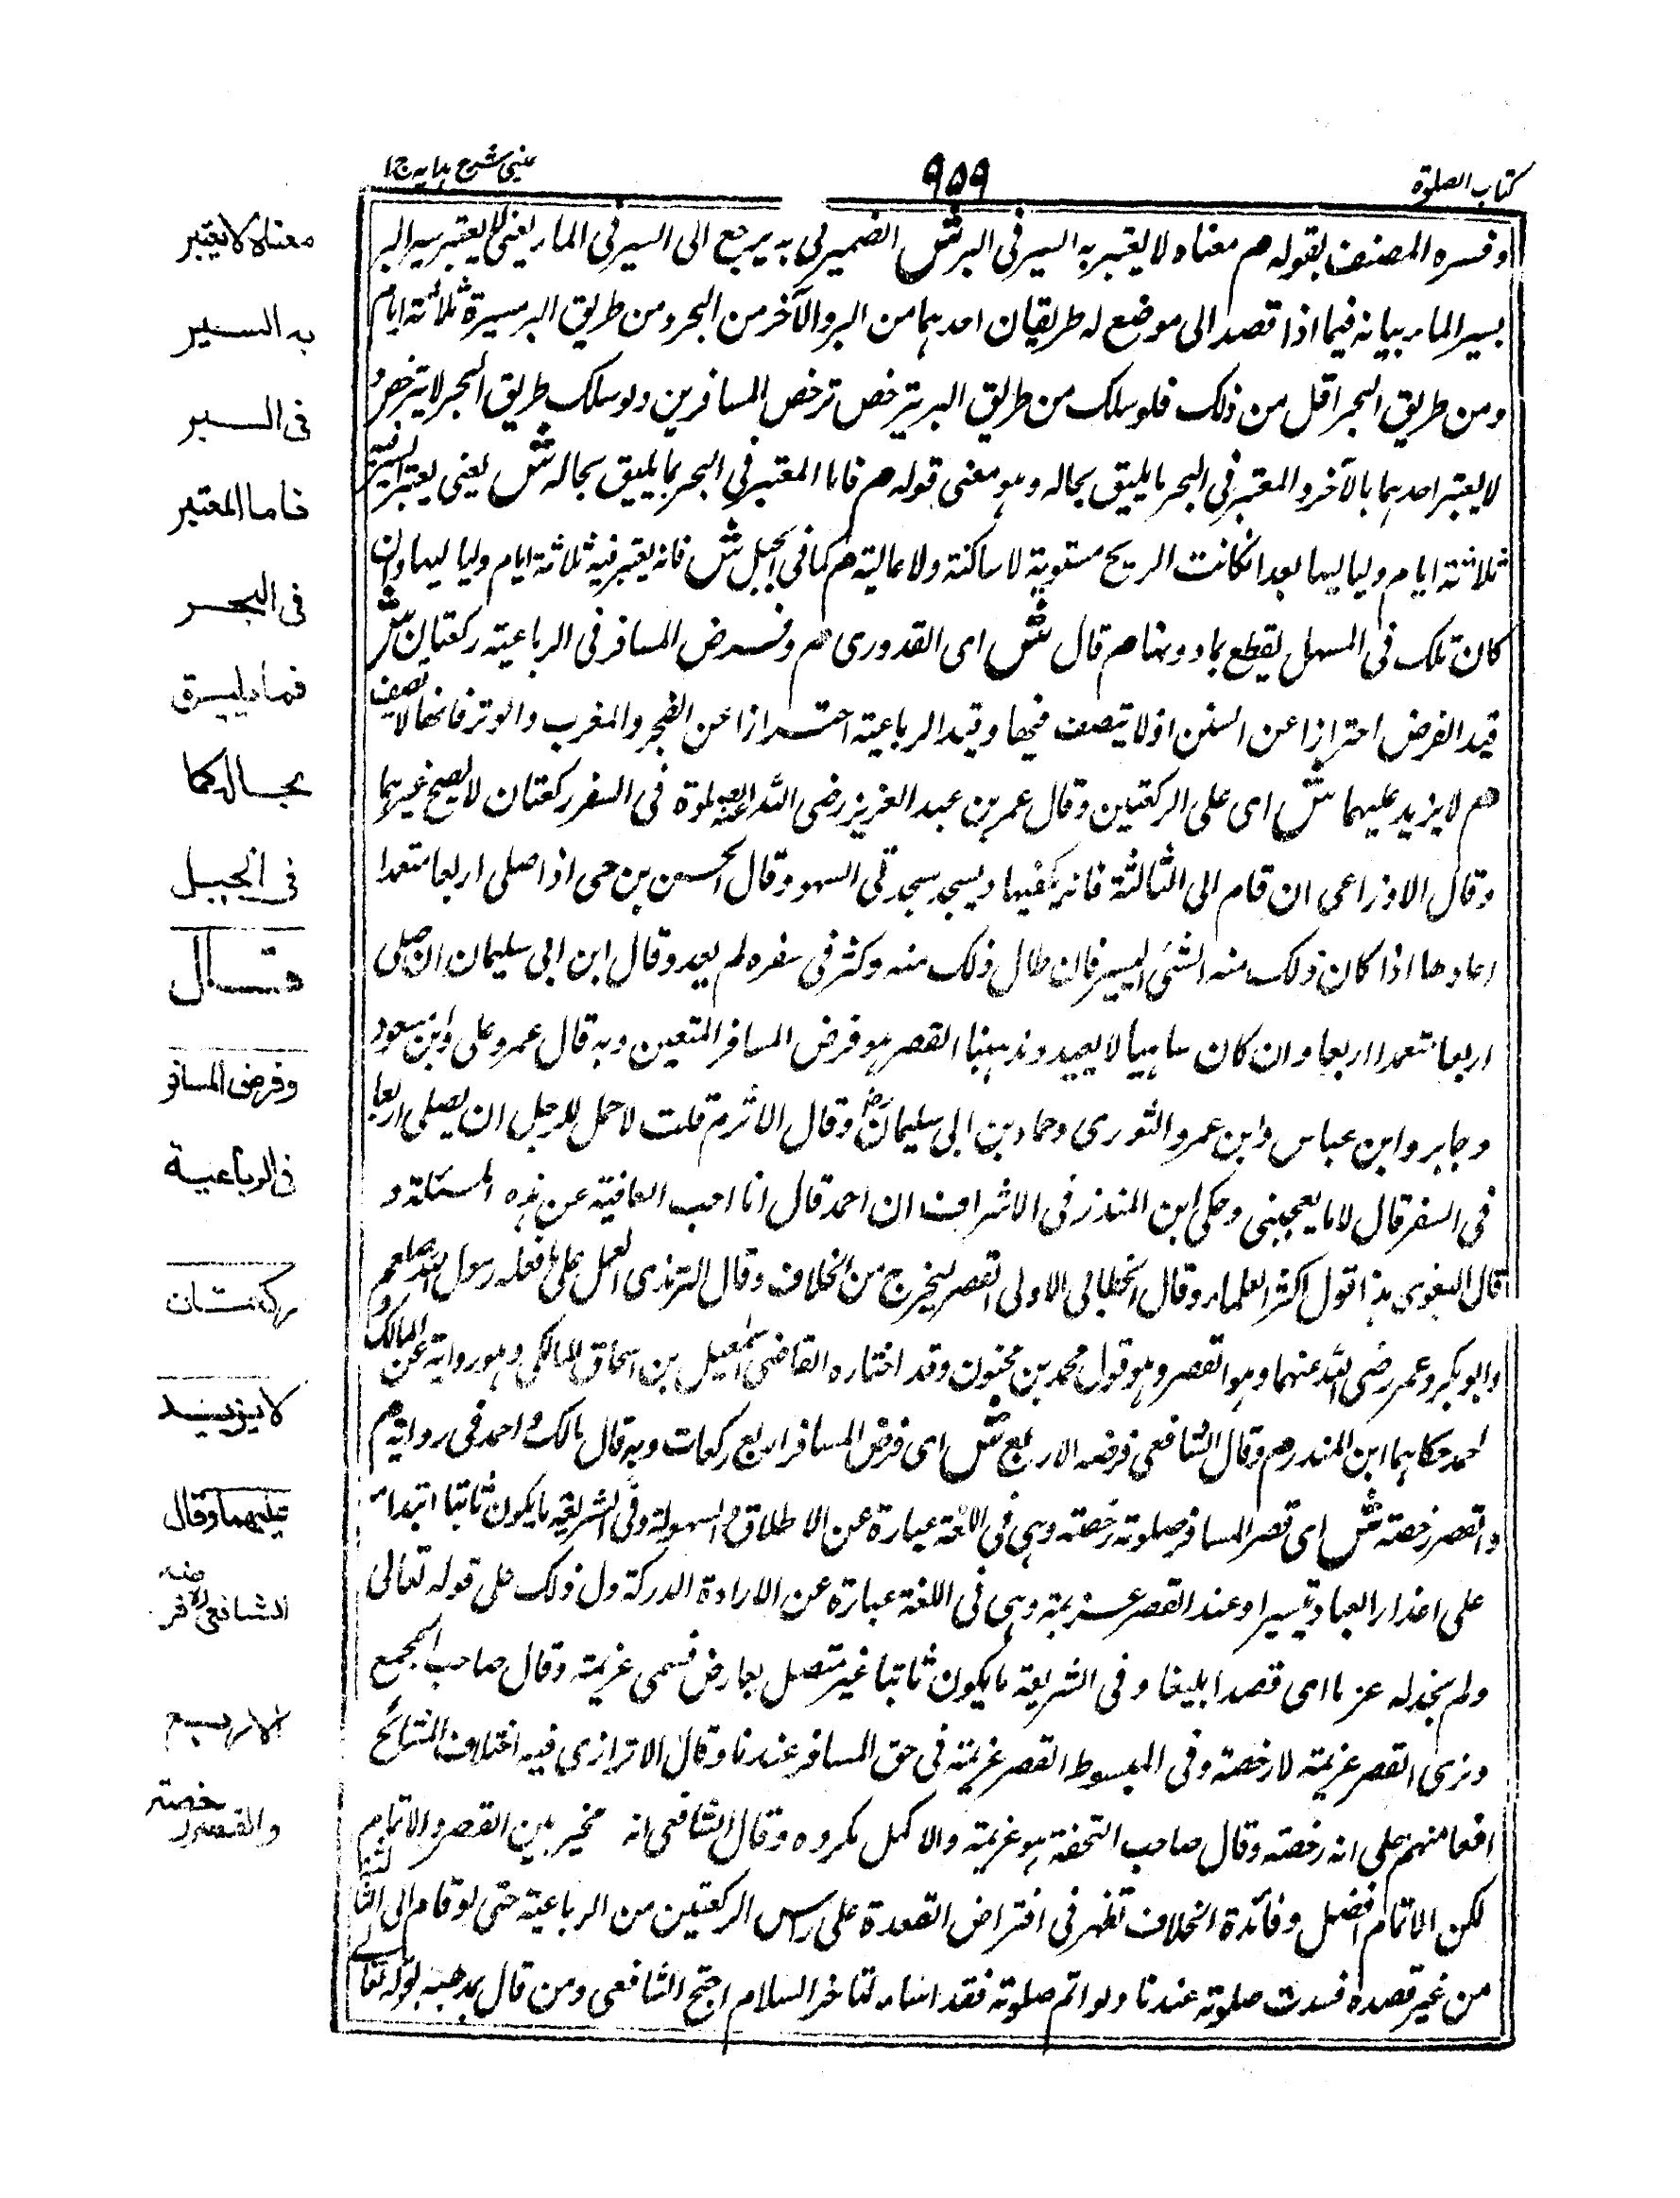 كتاب الصلوة
٩٥٩
عینی شرح هدایه ج ١
وفسره المصنف بقوله م معناه لا يعتبر به السير فى البر ش الضمير فى به يرجع الى السير فى الماء يعنى لا يعتبر سير البر
بسير الماء بيانه فيما اذا قصد الى موضع له طريقان احدهما من البر والآخر من البحر ومن طريق البر مسيرة ثلاثة ايام
ومن طريق البحر اقل من ذلك فلو سلك من طريق البر يترخص ترخص المسافرين ولو سلك طريق البحر لا يترخص و
لا يعتبر احدهما بالآخر والمعتبر فى البحر ما يليق بحاله وهو معنى قوله م فاما المعتبر فى البحر بما يليق بحاله ش يعنى يعتبر السير فيه
ثلاثة ايام ولياليها بعد انكانت الريح مستوية لا ساكنة ولا عالية م كما فى الجبل ش فانه يعتبر فيه ثلاثة ايام ولياليها وان
كان تلك فى السهل يقطع بما دونها م قال ش اى القدورى م وفرض المسافر فى الرباعية ركعتان ش
قيد الفرض احترازا عن السنن اذ لا يتصف فيها وقيد الرباعية احترازا عن الفجر والمغرب والوتر فانها لا تصف
م لا يزيد عليهما ش اى على الركعتين وقال عمر بن عبد العزيز رضى الله عنه الصلوة فى السفر ركعتان لا يصح غيرهما
وقال الاوزاعى ان قام الى الثالثة فانه يكفيها ويسجد سجدتى السهو وقال الحسن بن حى اذا صلى اربعا متعمدا
اعادها اذا كان ذلك منه الشئ اليسير فان طال ذلك منه وكثر فى سفره لم يعد وقال ابن ابى سليمان ان صلى
اربعا متعمدا اربعا وان كان ساهيا لا يعيد ومذهبنا القصر هو فرض المسافر المتعين وبه قال عمر وعلى وابن مسعود
وجابر وابن عباس وابن عمر والثورى وحماد بن ابى سليمان رض وقال الاثرم قلت لاحمد للرجل ان يصلى اربعا
فى السفر قال لا ما يعجبنى وحكى ابن المنذر فى الاشراف ان احمد قال انا احب العافية عن هذه المسئلة و
قال البغوى هذا قول اكثر العلماء وقال الخطابى الاولى القصر ليخرج من الخلاف وقال الترمذى العمل على ما فعله رسول الله صلعم
وابو بكر وعمر رضى الله عنهما وهو القصر وهو قول محمد بن سحنون وقد اختاره القاضى اسمعيل بن اسحاق المالكى وهو رواية عن مالك و
احمد حكاهما ابن المنذر م وقال الشافعى فرضه الاربع ش اى فرض المسافر اربع ركعات وبه قال مالك واحمد فى رواية م
والقصر رخصة ش اى قصر المسافر صلوته رخصة وهى فى اللغة عبارة عن الاطلاق والسهولة وفى الشريعة ما يكون ثابتا ابتداء
على اعذار العباد تيسيرا وعند القصر عزيمة وهى فى اللغة عبارة عن الارادة المدركة ول ذلك على قوله تعالى
ولم نجد له عزما اى قصدا بليغا وفى الشريعة ما يكون ثابتا غير متصل بعارض فسمى عزيمة وقال صاحب المجمع
ونرى القصر عزيمة لا رخصة وفى المبسوط القصر عزيمة فى حق المسافر عندنا وقال الاترازى فيه اختلاف المشائخ
افعا منهم على انه رخصة وقال صاحب التحفة هو عزيمة والاكمل مكروه وقال الشافعى انه مخير بين القصر والاتمام
لكن الاتمام افضل وفائدة الخلاف تظهر فى افتراض القعدة على راس الركعتين من الرباعية حتى لو قام الى الثالثة
من غير قصده فسدت صلوته عندنا ولو اتم صلوته فقد اساء لتاخر السلام احتج الشافعى ومن قال بمذهبه بقوله تعالى
معناه لا يعتبر
به السير
فى السير
فاما المعتبر
فى البحر
فما يليق
بحاله كما
فى الجبل
قال
وفرض المسافر
فى الرباعية
ركعتان
لا يزيد
عليهما وقال
الشافعى فرضه
الاربع
والقصر رخصة